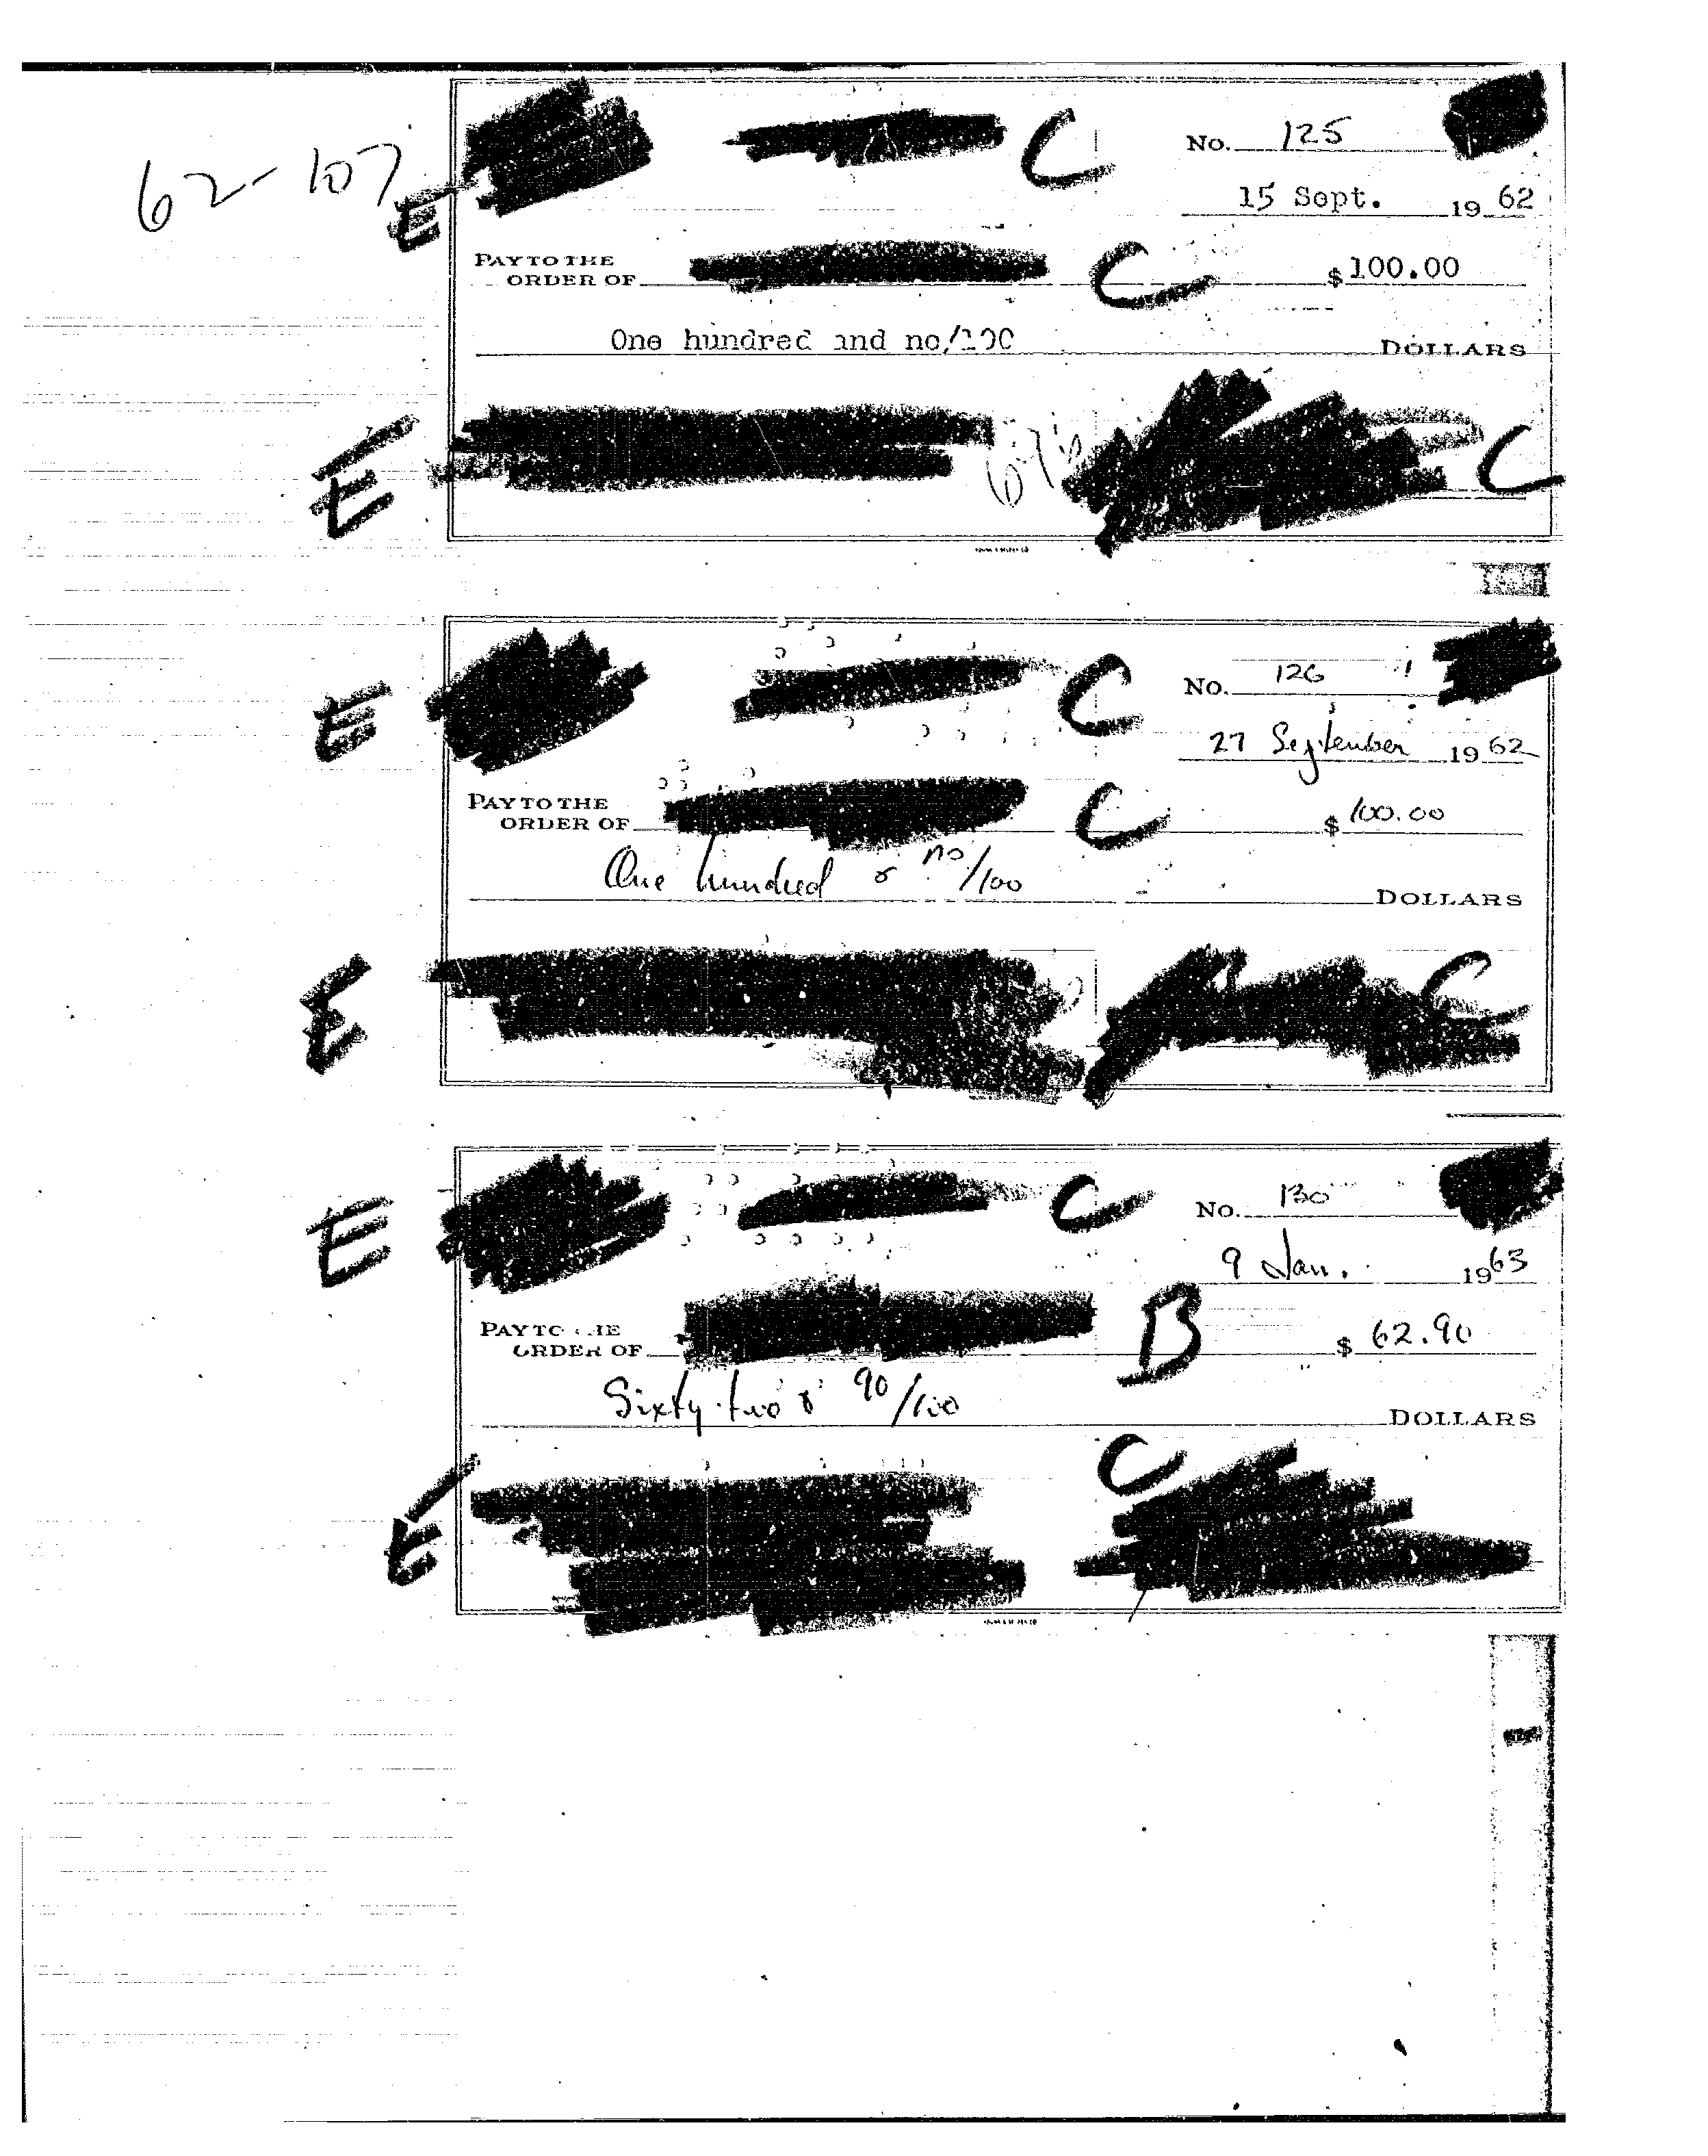 62-107
C No. 125
E
15 Sept. 19 62
PAY TO THE
ORDER OF C $ 100.00
One hundred and no/100 DOLLARS
E C
E C No. 126
27 September 19 62
PAY TO THE
ORDER OF C $ 100.00
One hundred & no/100
DOLLARS
E C
E C No. 130
9 Jan. 19 63
PAY TO
ORDER OF B $ 62.90
Sixty-two & 90/100
DOLLARS
C
E